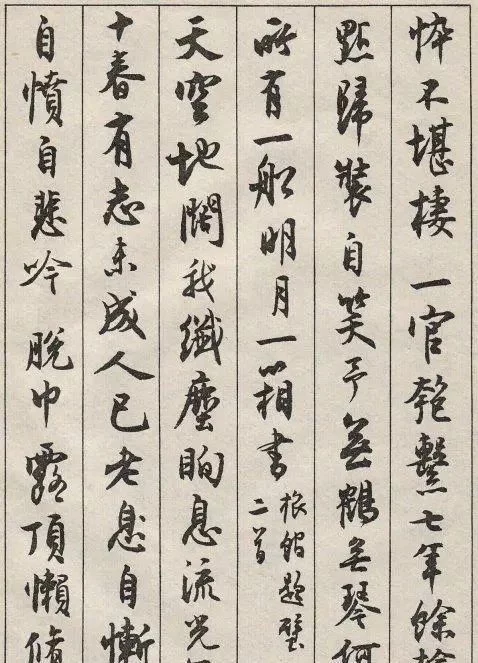 悴不堪棲一官匏繫七年餘檢
點歸裝自笑予無鶴無琴何
所有一船明月一箱書旅館題壁
二首
天空地闊我纖塵眴息流光
十春有志未成人已老息自慚
自憤自悲吟脫巾露頂懶脩